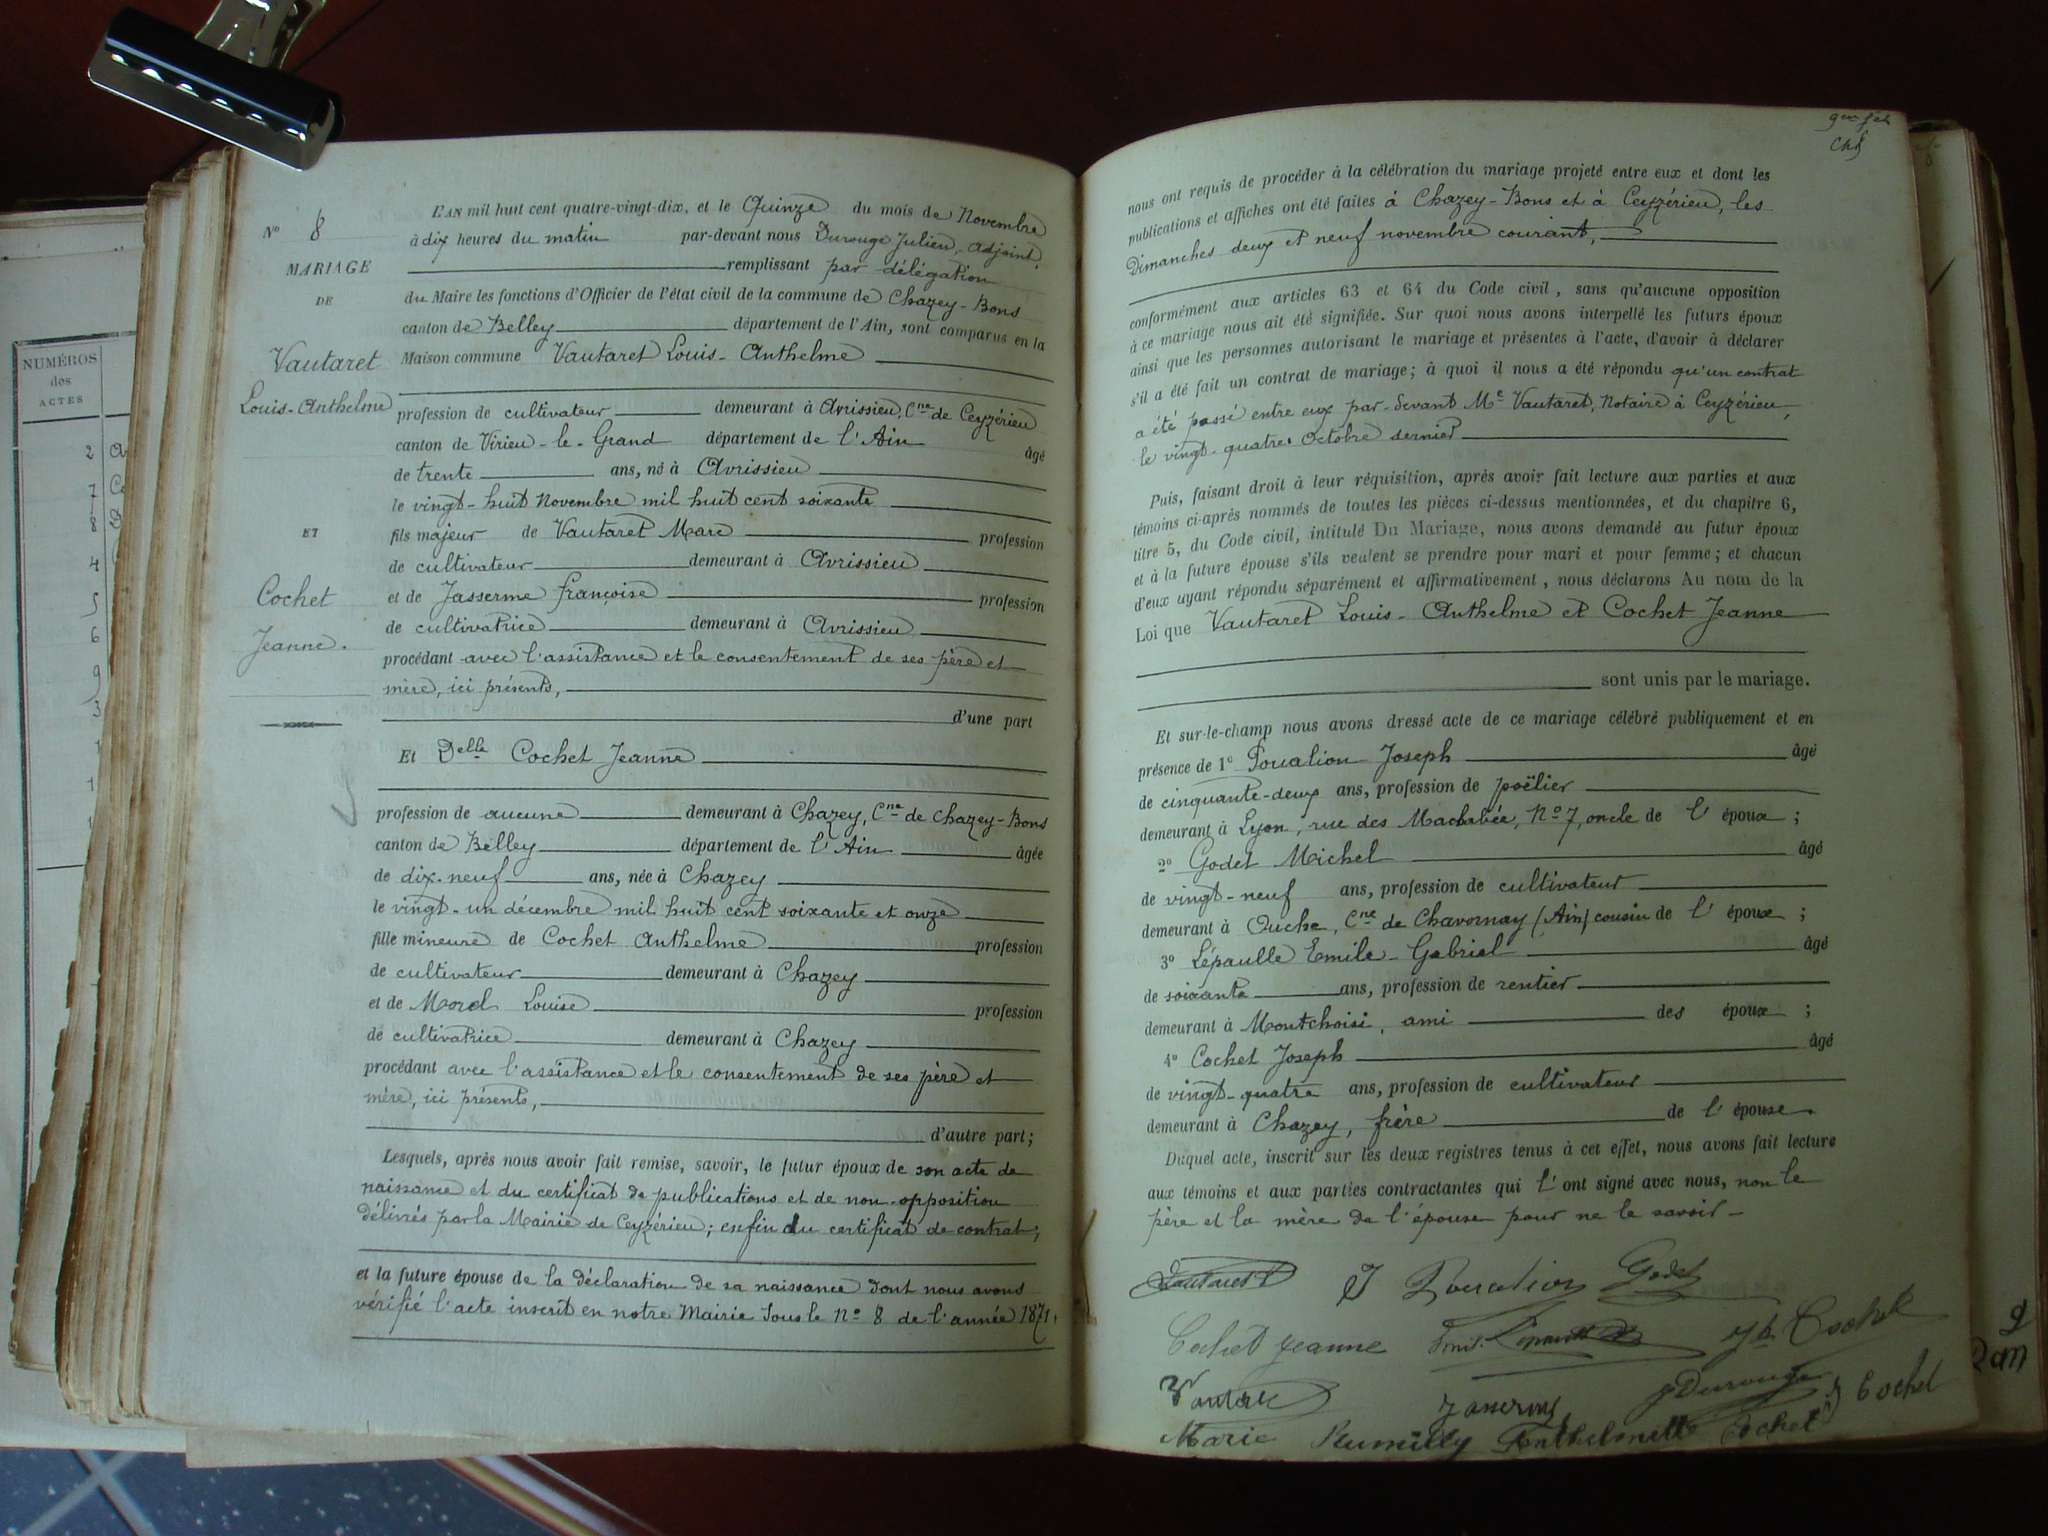 NUMÉROS
des
ACTES
2
7
8
4
5
6
9
3
1
1
1
Nº 8
MARIAGE
DE
Vautaret
Louis-Anthelme
ET
Cochet
Jeanne.
L'AN mil huit cent quatre-vingt-dix, et le Quinze du mois de Novembre
à dix heures du matin par-devant nous Durouge Julien, adjoint,
remplissant par délégation
du Maire les fonctions d'Officier de l'état civil de la commune de Chazey-Bons
canton de Belley département de l'Ain, sont comparus en la
Maison commune Vautaret Louis-Anthelme
profession de cultivateur demeurant à Avrissieu, Cne de Ceyzérieu
canton de Virieu-le-Grand département de l'Ain âgé
de trente ans, né à Avrissieu
le vingt-huit Novembre mil huit cent soixante
fils majeur de Vautaret Marc profession
de cultivateur demeurant à Avrissieu
et de Jasserme françoise profession
de cultivatrice demeurant à Avrissieu
procédant avec l'assistance et le consentement de ses père et
mère, ici présents,
d'une part
Et Delle Cochet Jeanne
profession de aucune demeurant à Chazey, Cne de Chazey-Bons
canton de Belley département de l'Ain âgée
de dix-neuf ans, née à Chazey
le vingt-un décembre mil huit cent soixante et onze
fille mineure de Cochet Anthelme profession
de cultivateur demeurant à Chazey
et de Morel Louise profession
de cultivatrice demeurant à Chazey
procédant avec l'assistance et le consentement de ses père et
mère, ici présents,
d'autre part;
Lesquels, après nous avoir fait remise, savoir, le futur époux de son acte de
naissance et du certificat de publications et de non-opposition
délivrés par la Mairie de Ceyzérieu; enfin du certificat de contrat;
et la future épouse de la déclaration de sa naissance dont nous avons
vérifié l'acte inscrit en notre Mairie sous le Nº 8 de l'année 1871.
nous ont requis de procéder à la célébration du mariage projeté entre eux et dont les
publications et affiches ont été faites à Chazey-Bons et à Ceyzérieu, les
Dimanches deux et neuf novembre courant,
conformément aux articles 63 et 64 du Code civil, sans qu'aucune opposition
à ce mariage nous ait été signifiée. Sur quoi nous avons interpellé les futurs époux
ainsi que les personnes autorisant le mariage et présentes à l'acte, d'avoir à déclarer
s'il a été fait un contrat de mariage; à quoi il nous a été répondu qu'un contrat
a été passé entre eux par-devant Me Vautaret, Notaire à Ceyzérieu,
le vingt-quatre Octobre dernier
Puis, faisant droit à leur réquisition, après avoir fait lecture aux parties et aux
témoins ci-après nommés de toutes les pièces ci-dessus mentionnées, et du chapitre 6,
titre 5, du Code civil, intitulé Du Mariage, nous avons demandé au futur époux
et à la future épouse s'ils veulent se prendre pour mari et pour femme; et chacun
d'eux ayant répondu séparément et affirmativement, nous déclarons Au nom de la
Loi que Vautaret Louis-Anthelme et Cochet Jeanne
sont unis par le mariage.
Et sur-le-champ nous avons dressé acte de ce mariage célébré publiquement et en
présence de 1º Poualion Joseph âgé
de cinquante-deux ans, profession de poëlier
demeurant à Lyon, rue des Machabée, Nº 7, oncle de l'époux;
2º Godet Michel âgé
de vingt-neuf ans, profession de cultivateur
demeurant à Ouche, Cne de Chavornay (Ain) cousin de l'époux;
3º Lépaulle Emile-Gabriel âgé
de soixante ans, profession de rentier
demeurant à Montchoisi, ami des époux;
4º Cochet Joseph âgé
de vingt-quatre ans, profession de cultivateur
demeurant à Chazey, frère de l'épouse
Duquel acte, inscrit sur les deux registres tenus à cet effet, nous avons fait lecture
aux témoins et aux parties contractantes qui l'ont signé avec nous, non le
père et la mère de l'épouse pour ne le savoir
Vautaret J Poualion Godet
Cochet Jeanne Jh Cochet
Vautaret Jasserme J Durouge J Cochet
Marie Rumilly Anthelmette Cochet